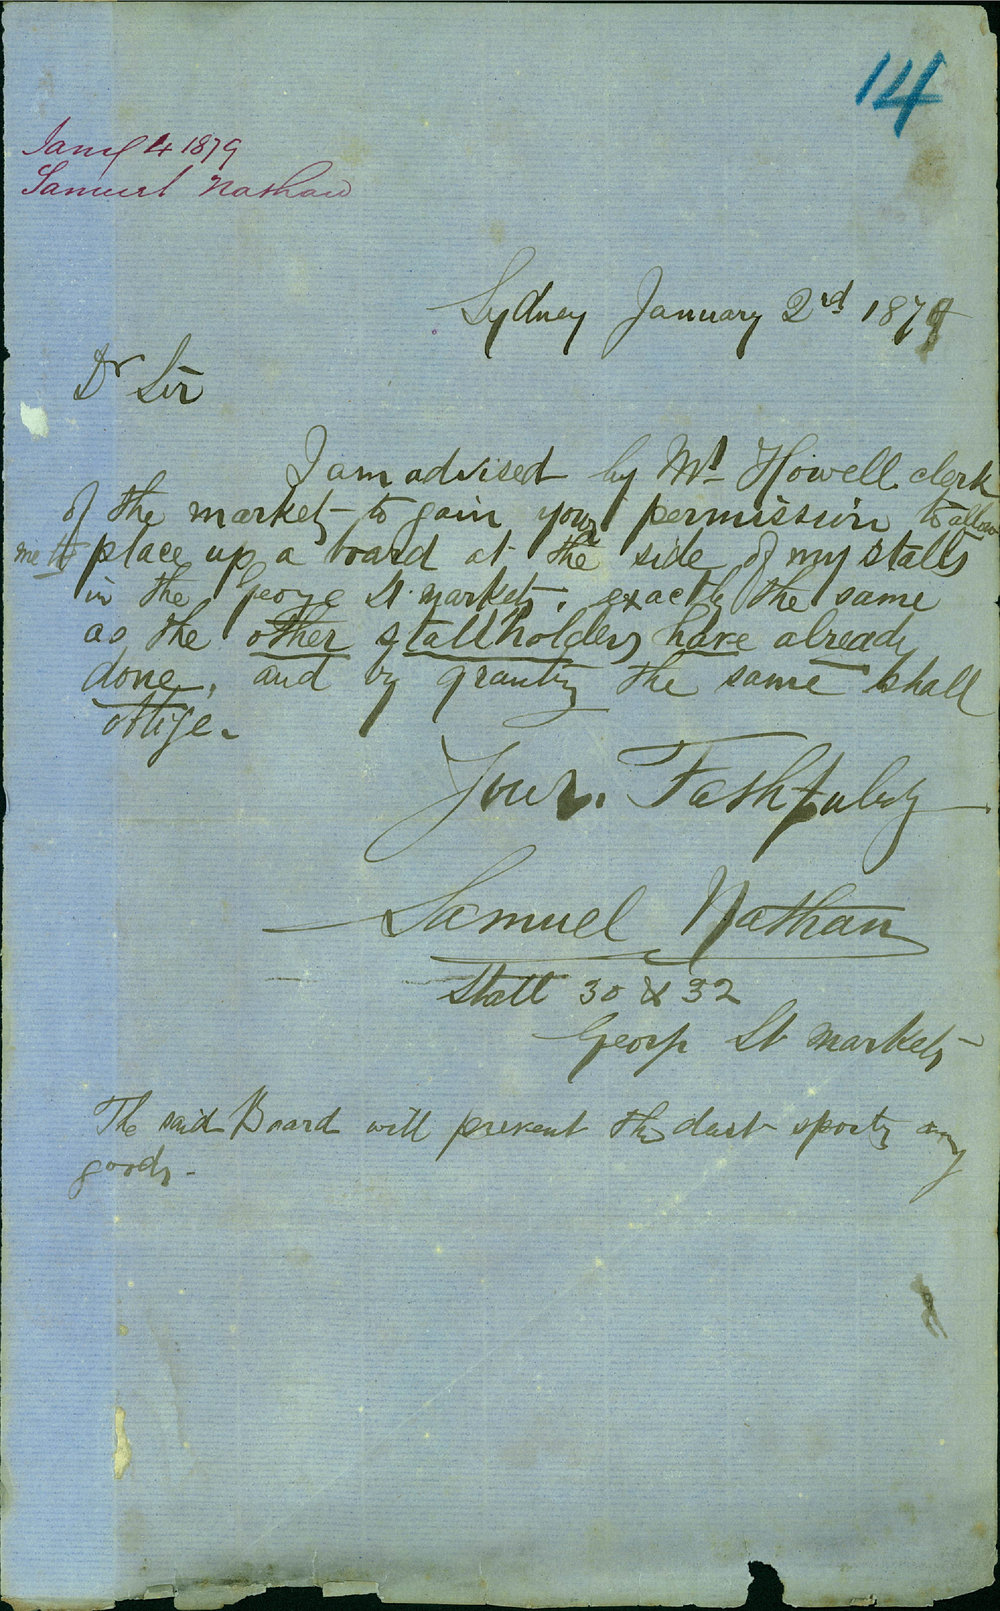 14
Jany 4 1879
Samuel Nathan
Sydney January 2nd 1879
Dr Sir
I am advised by Mr Howell clerk
of the markets to gain your permission to allow
me to place up a board at the side of my stalls
in the George St markets, exactly the same
as the other stallholders have already
done, and by granting the same shall
oblige.
Yours Faithfully
Samuel Nathan
Stall 30 & 32
George St markets
The said Board will prevent the dust spoiling my
goods.